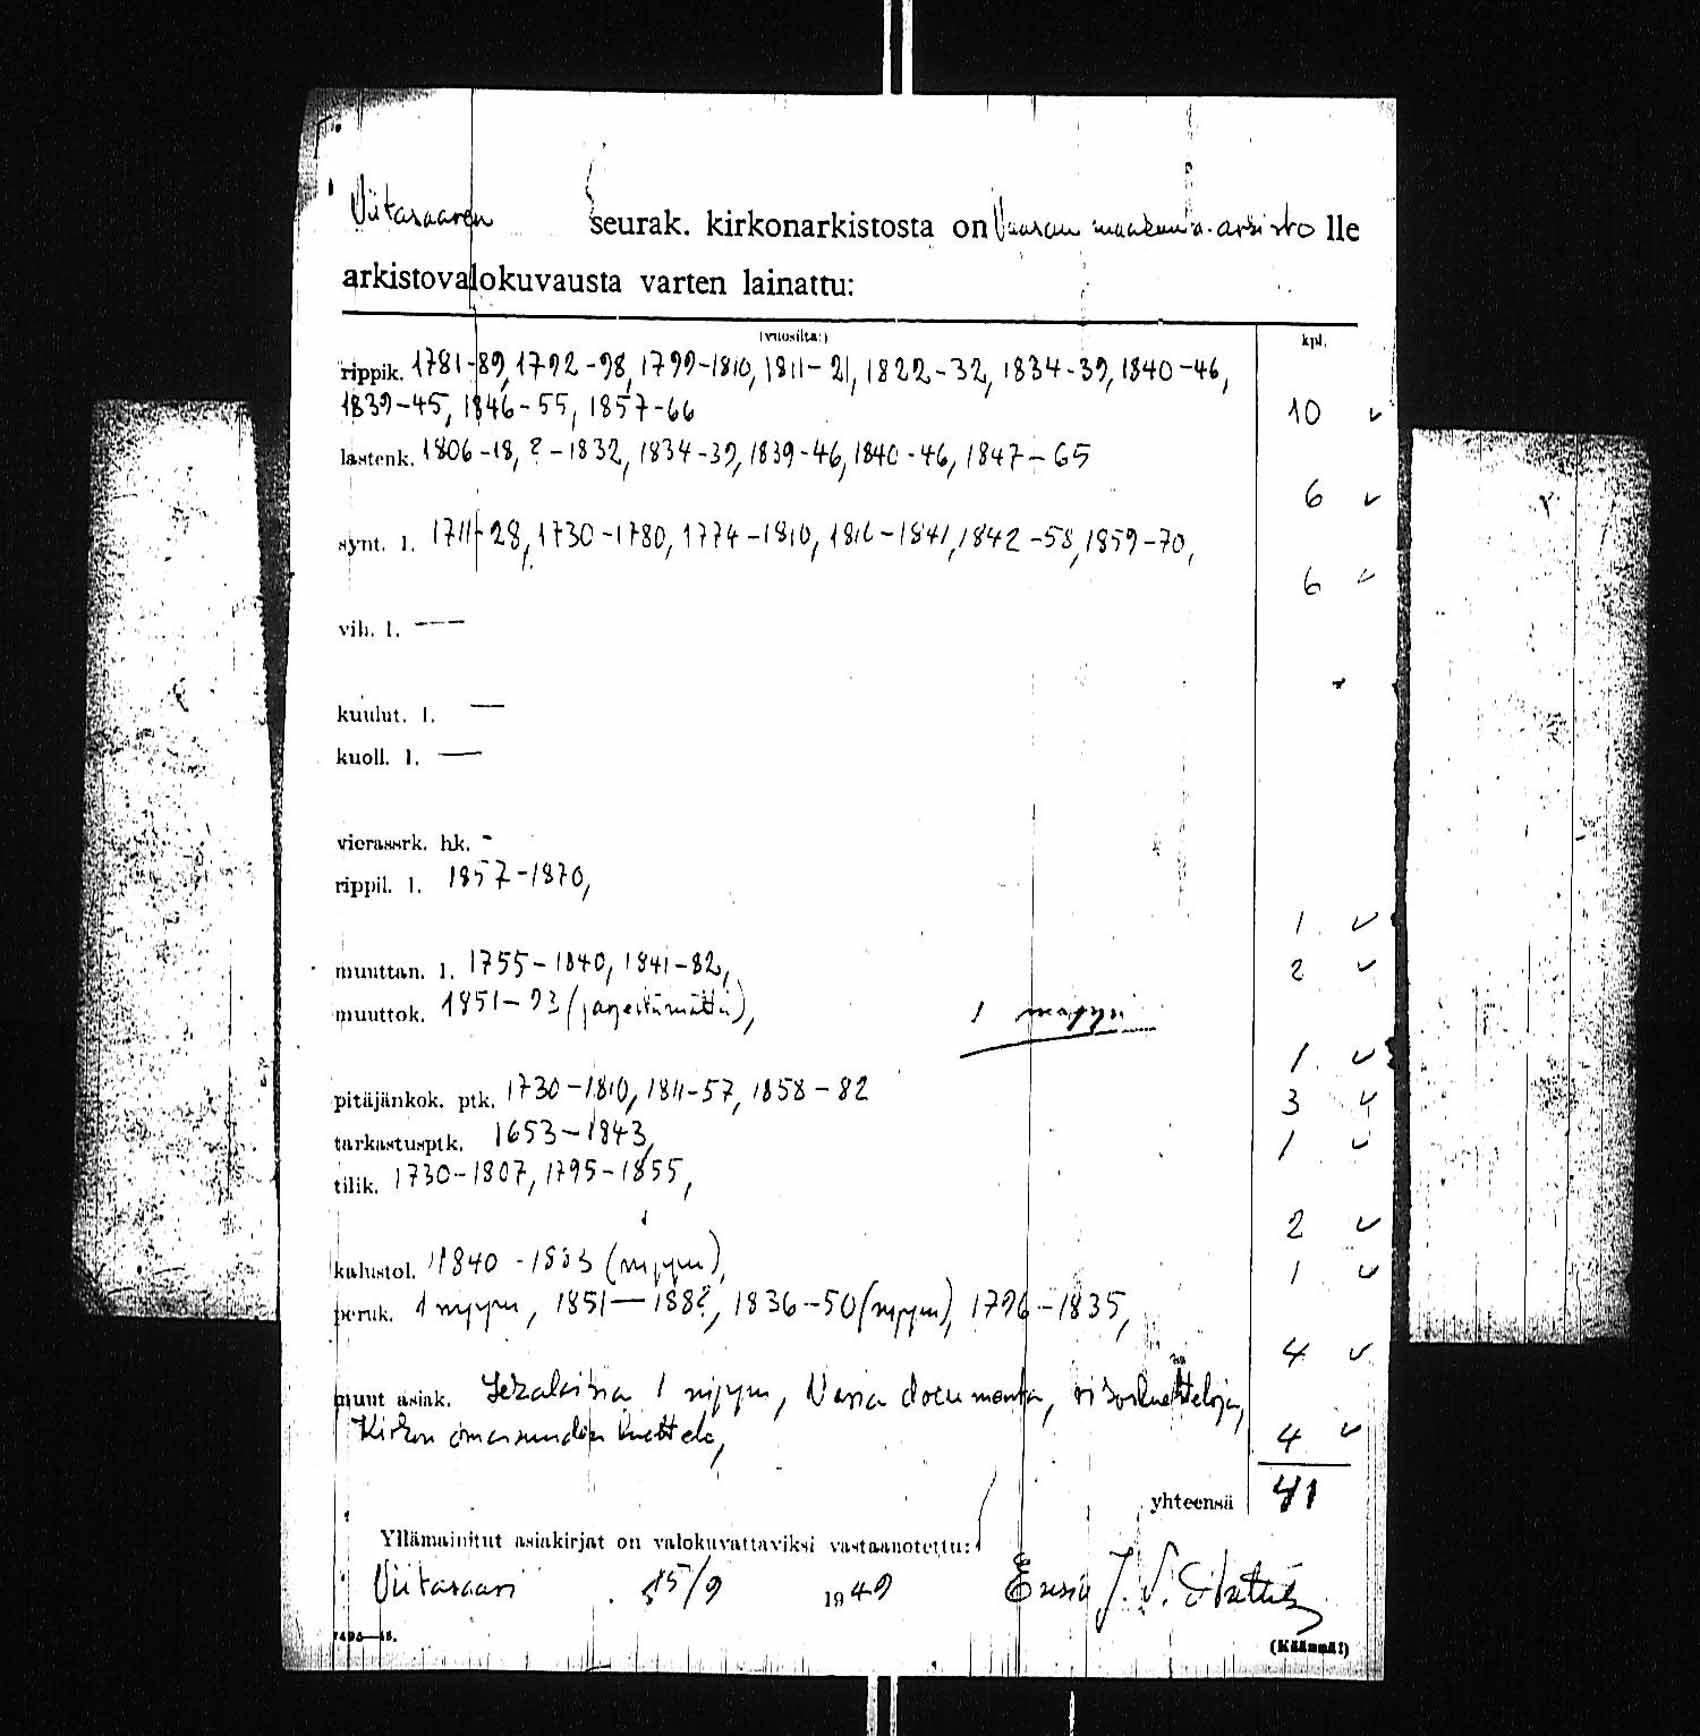 Viitasaaren seurak. kirkonarkistosta on Vaasan maakunta-arkisto lle
arkistovalokuvausta varten lainattu:
(vuosilta:) kpl.
rippik. 1781-89, 1792-98, 1799-1810, 1811-21, 1822-32, 1834-39, 1840-46,
1839-45, 1846-55, 1857-66 10 ✓
lastenk. 1806-18, ?-1832, 1834-39, 1839-46, 1840-46, 1847-65
6 ✓
synt. l. 1711-28, 1730-1780, 1774-1810, 1816-1841, 1842-58, 1859-70,
6 ✓
vih. l. —
kuulut. l. —
kuoll. l. —
vierassrk. hk. -
rippil. l. 1857-1870,
1 ✓
muuttan. l. 1755-1840, 1841-82, 2 ✓
muuttok. 1851-93 (järjestämättä), 1 mappi
1 ✓
pitäjänkok. ptk. 1730-1810, 1811-57, 1858-82 3 ✓
tarkastusptk. 1653-1843, 1 ✓
tilik. 1730-1807, 1795-1855,
2 ✓
kalustol. 1840-1883 (nippu), 1 ✓
peruk. 1 nippu, 1851-188?, 1836-50 (nippu), 1796-1835,
4 ✓
muut asiak. Sekalaisia 1 nippu, Varia documenta,
Kirkon omaisuuden luettelo, 4 ✓
yhteensä 41
Yllämainitut asiakirjat on valokuvattaviksi vastaanotettu:
Viitasaari 15/9 1949 J. V.
(Käännä!)